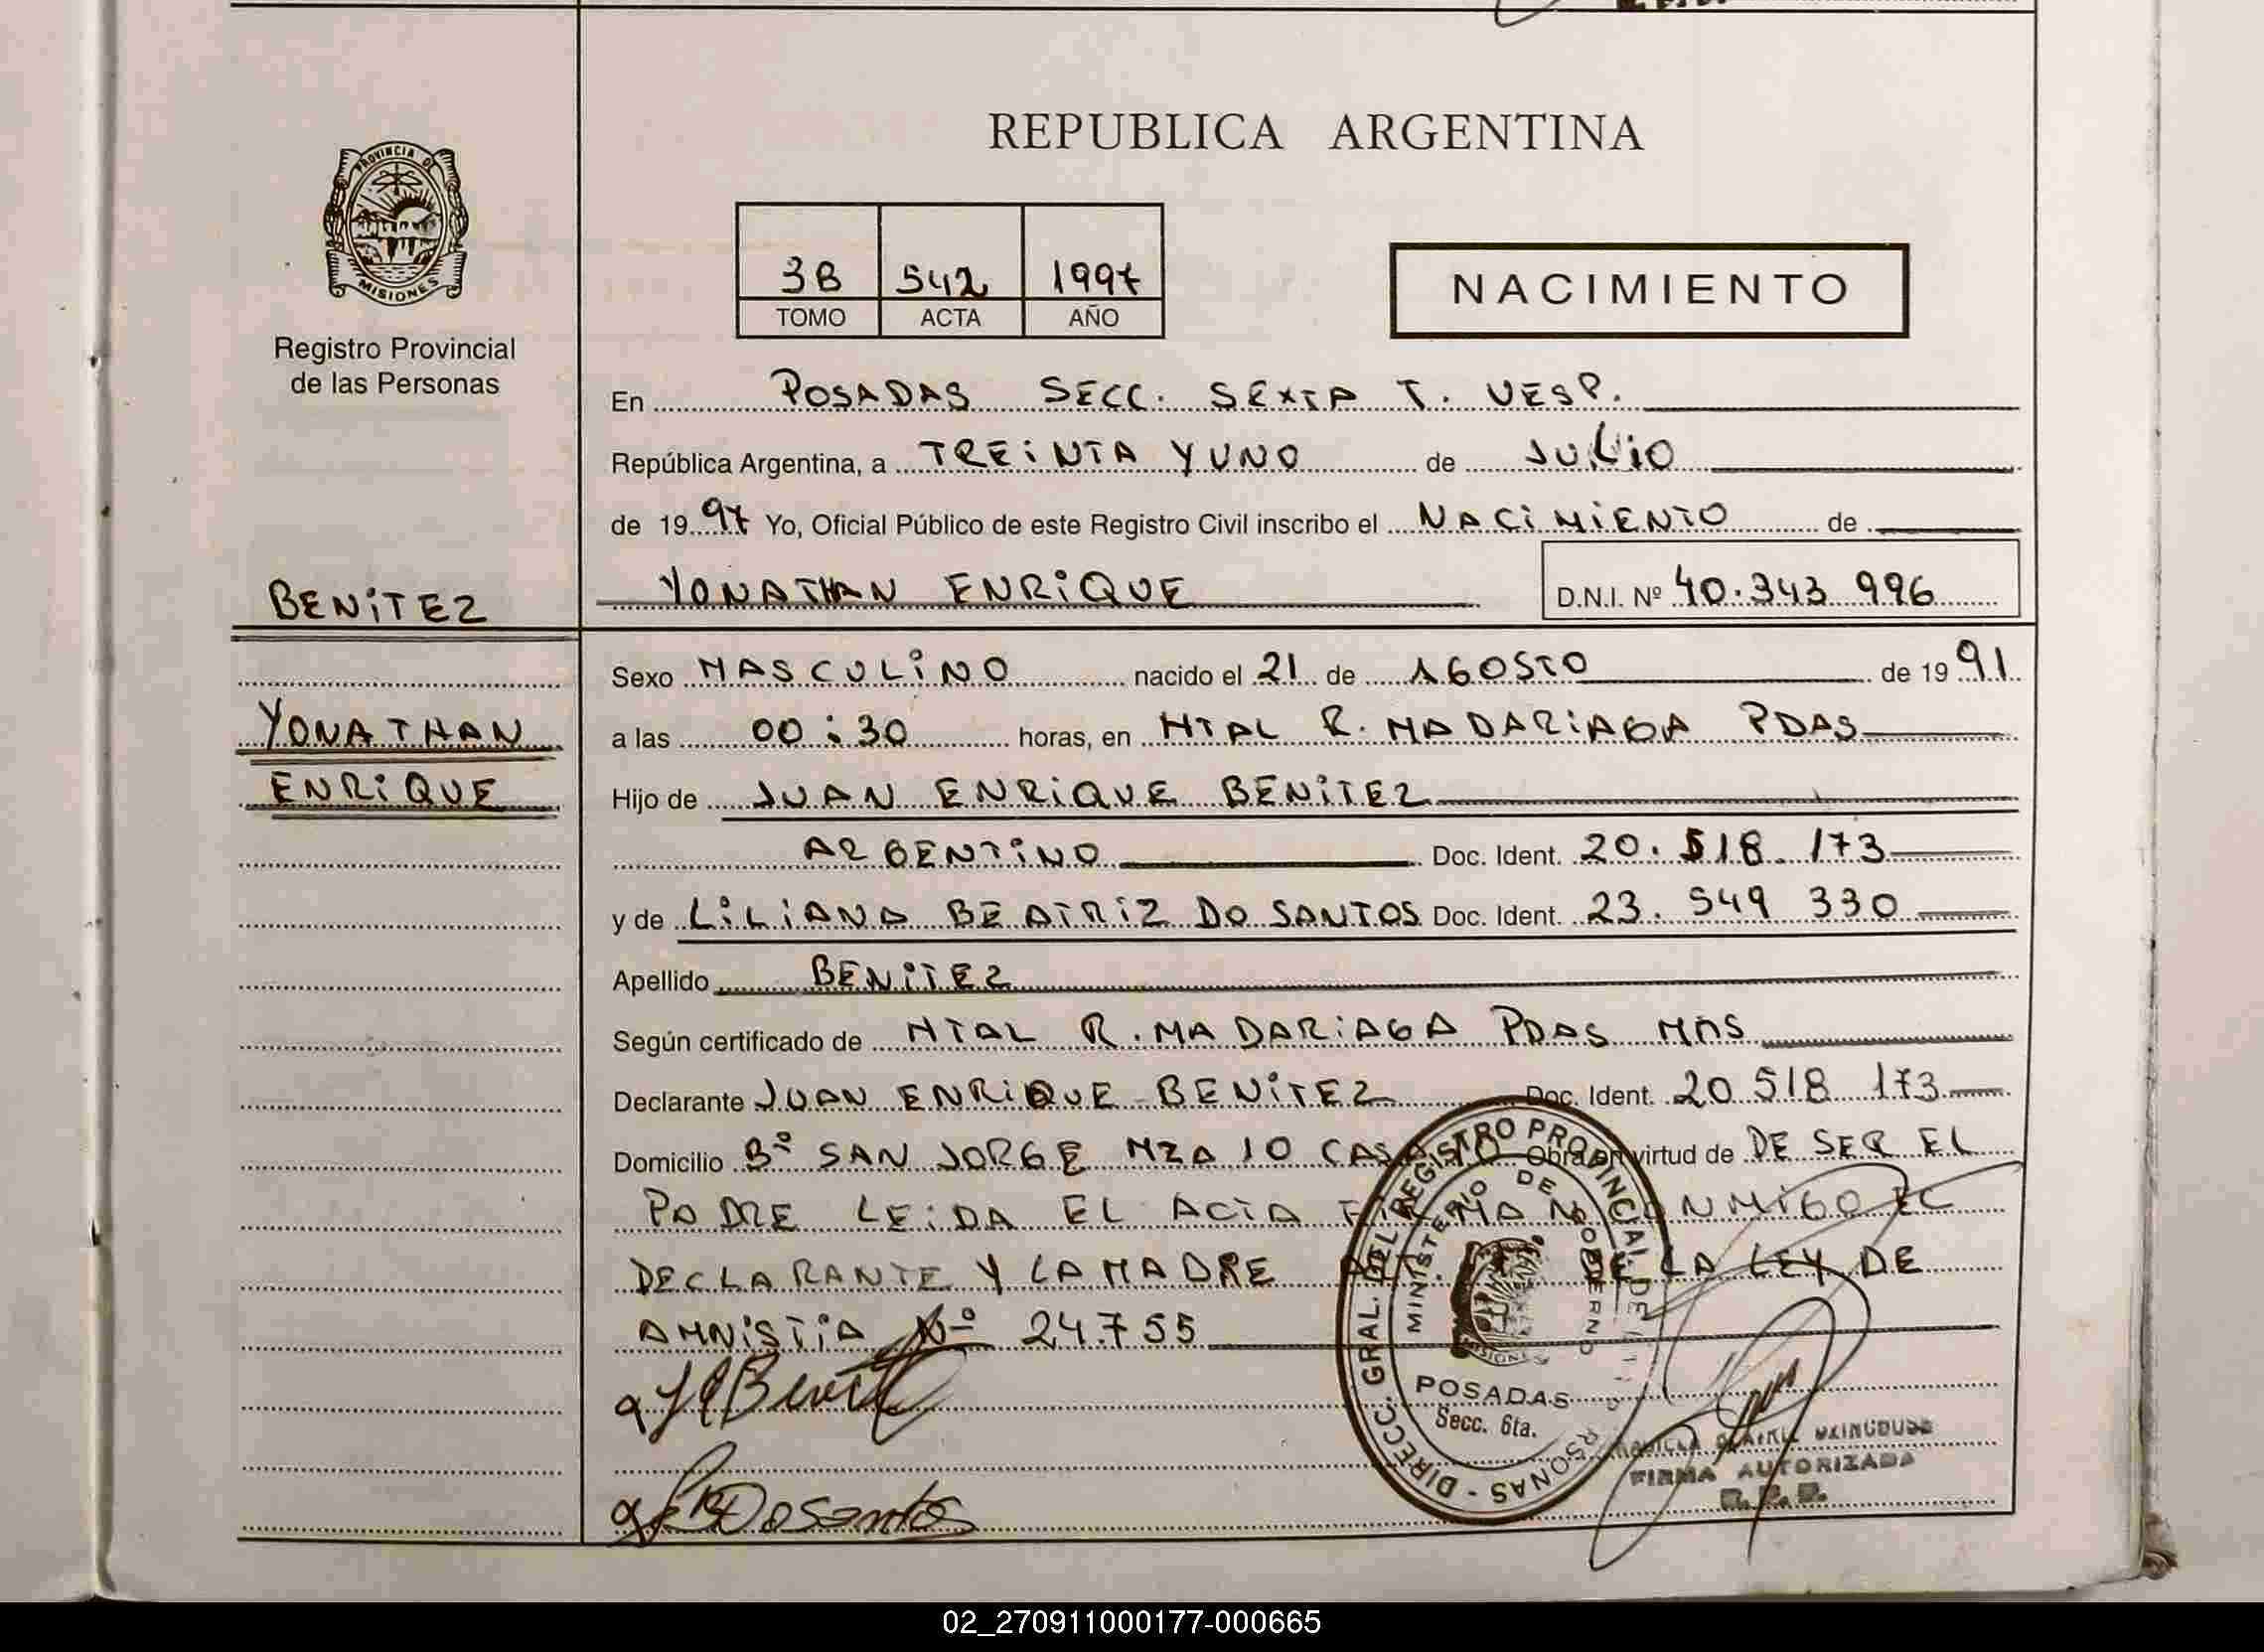 REPUBLICA ARGENTINA
PROVINCIA DE
MISIONES
Registro Provincial
de las Personas
3B 542 1997
TOMO ACTA AÑO
NACIMIENTO
En POSADAS SECC. SEXTA T. VESP.
República Argentina, a TREINTA Y UNO de JULIO
de 1997 Yo, Oficial Público de este Registro Civil inscribo el NACIMIENTO de
BENITEZ YONATHAN ENRIQUE D.N.I. Nº 40.343 996
Sexo MASCULINO nacido el 21 de AGOSTO de 1991
YONATHAN a las 00:30 horas, en HTAL R. MADARIAGA PDAS
ENRIQUE Hijo de JUAN ENRIQUE BENITEZ
ARGENTINO Doc. Ident. 20.518.173
y de LILIANA BEATRIZ DO SANTOS Doc. Ident. 23.549 330
Apellido BENITEZ
Según certificado de HTAL R. MADARIAGA PDAS MNS
Declarante JUAN ENRIQUE BENITEZ Doc. Ident. 20 518 173
Domicilio Bº SAN JORGE MZA 10 CASA Obra en virtud de DE SER EL
PADRE LEIDA EL ACTA FIRMAN CONMIGO EL
DECLARANTE Y LA MADRE DE LA LEY DE
AMNISTIA Nº 24.755
DIRECC. GRAL. DEL REGISTRO PROVINCIAL DE LAS PERSONAS -
MINISTERIO DE GOBIERNO
MISIONES
POSADAS
Secc. 6ta.
FIRMA AUTORIZADA
02_270911000177-000665